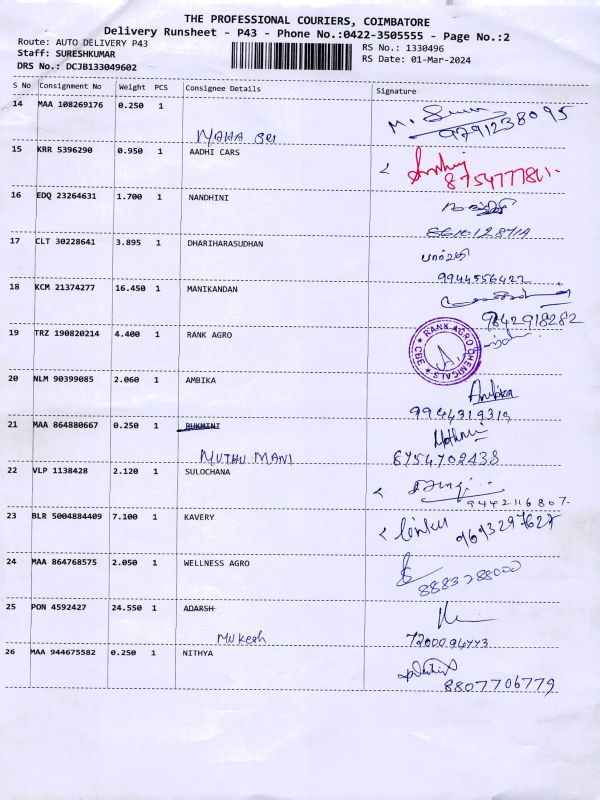 THE PROFESSIONAL COURIERS, COIMBATORE
Delivery Runsheet - P43 - Phone No.:0422-3505555 - Page No.:2
Route: AUTO DELIVERY P43
RS No.: 1330496
Staff: SURESHKUMAR
RS Date: 01-Mar-2024
DRS No.: DCJB133049602
S No Consignment No Weight PCS Consignee Details Signature
14 MAA 108269176 0.250 1
9791238095
MAHA SRI
15 KRR 5396290 0.950 1 AADHI CARS
16 EDQ 23264631 1.700 1 NANDHINI
17 CLT 30228641 3.895 1 DHARIHARASUDHAN
பார்வதி
18 KCM 21374277 16.450 1 MANIKANDAN
9842918282
19 TRZ 190820214 4.400 1 RANK AGRO
RANK AGRO CHEMICALS CBE
20 NLM 90399085 2.060 1 AMBIKA
Ambika
9944319319
21 MAA 864880667 0.250 1 RUKMINI
MUTHU MANI 8754702438
22 VLP 1138428 2.120 1 SULOCHANA
9442116807
23 BLR 5004884409 7.100 1 KAVERY
9693297627
24 MAA 864768575 2.050 1 WELLNESS AGRO
8883788000
25 PON 4592427 24.550 1 ADARSH
Mukesh 7200094773
26 MAA 944675582 0.250 1 NITHYA
8807706779